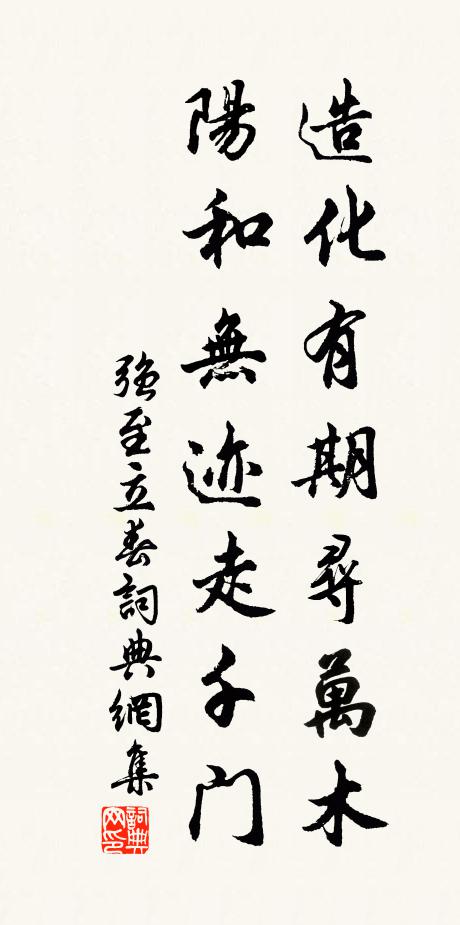 造化有期尋萬木
陽和無迹走千門
強至立春詞典網集
詞典網印